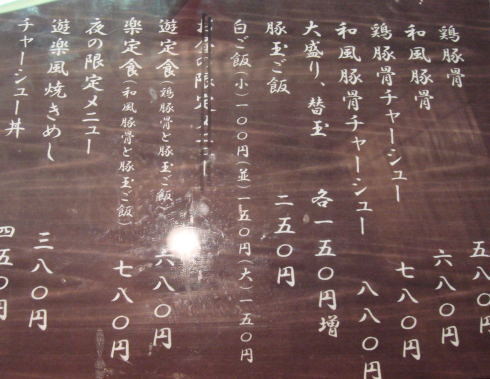 鶏豚骨 五八〇円
和風豚骨 六八〇円
鶏豚骨チャーシュー 七八〇円
和風豚骨チャーシュー 八八〇円
大盛り、替玉 各一五〇円増
豚玉ご飯 二五〇円
白ご飯（小）一〇〇円（並）一五〇円（大）一五〇円
の限定メニュー
遊定食（鶏豚骨と豚玉ご飯） 六八〇円
楽定食（和風豚骨と豚玉ご飯） 七八〇円
夜の限定メニュー
遊楽風焼きめし 三八〇円
チャーシュー丼 四五〇円